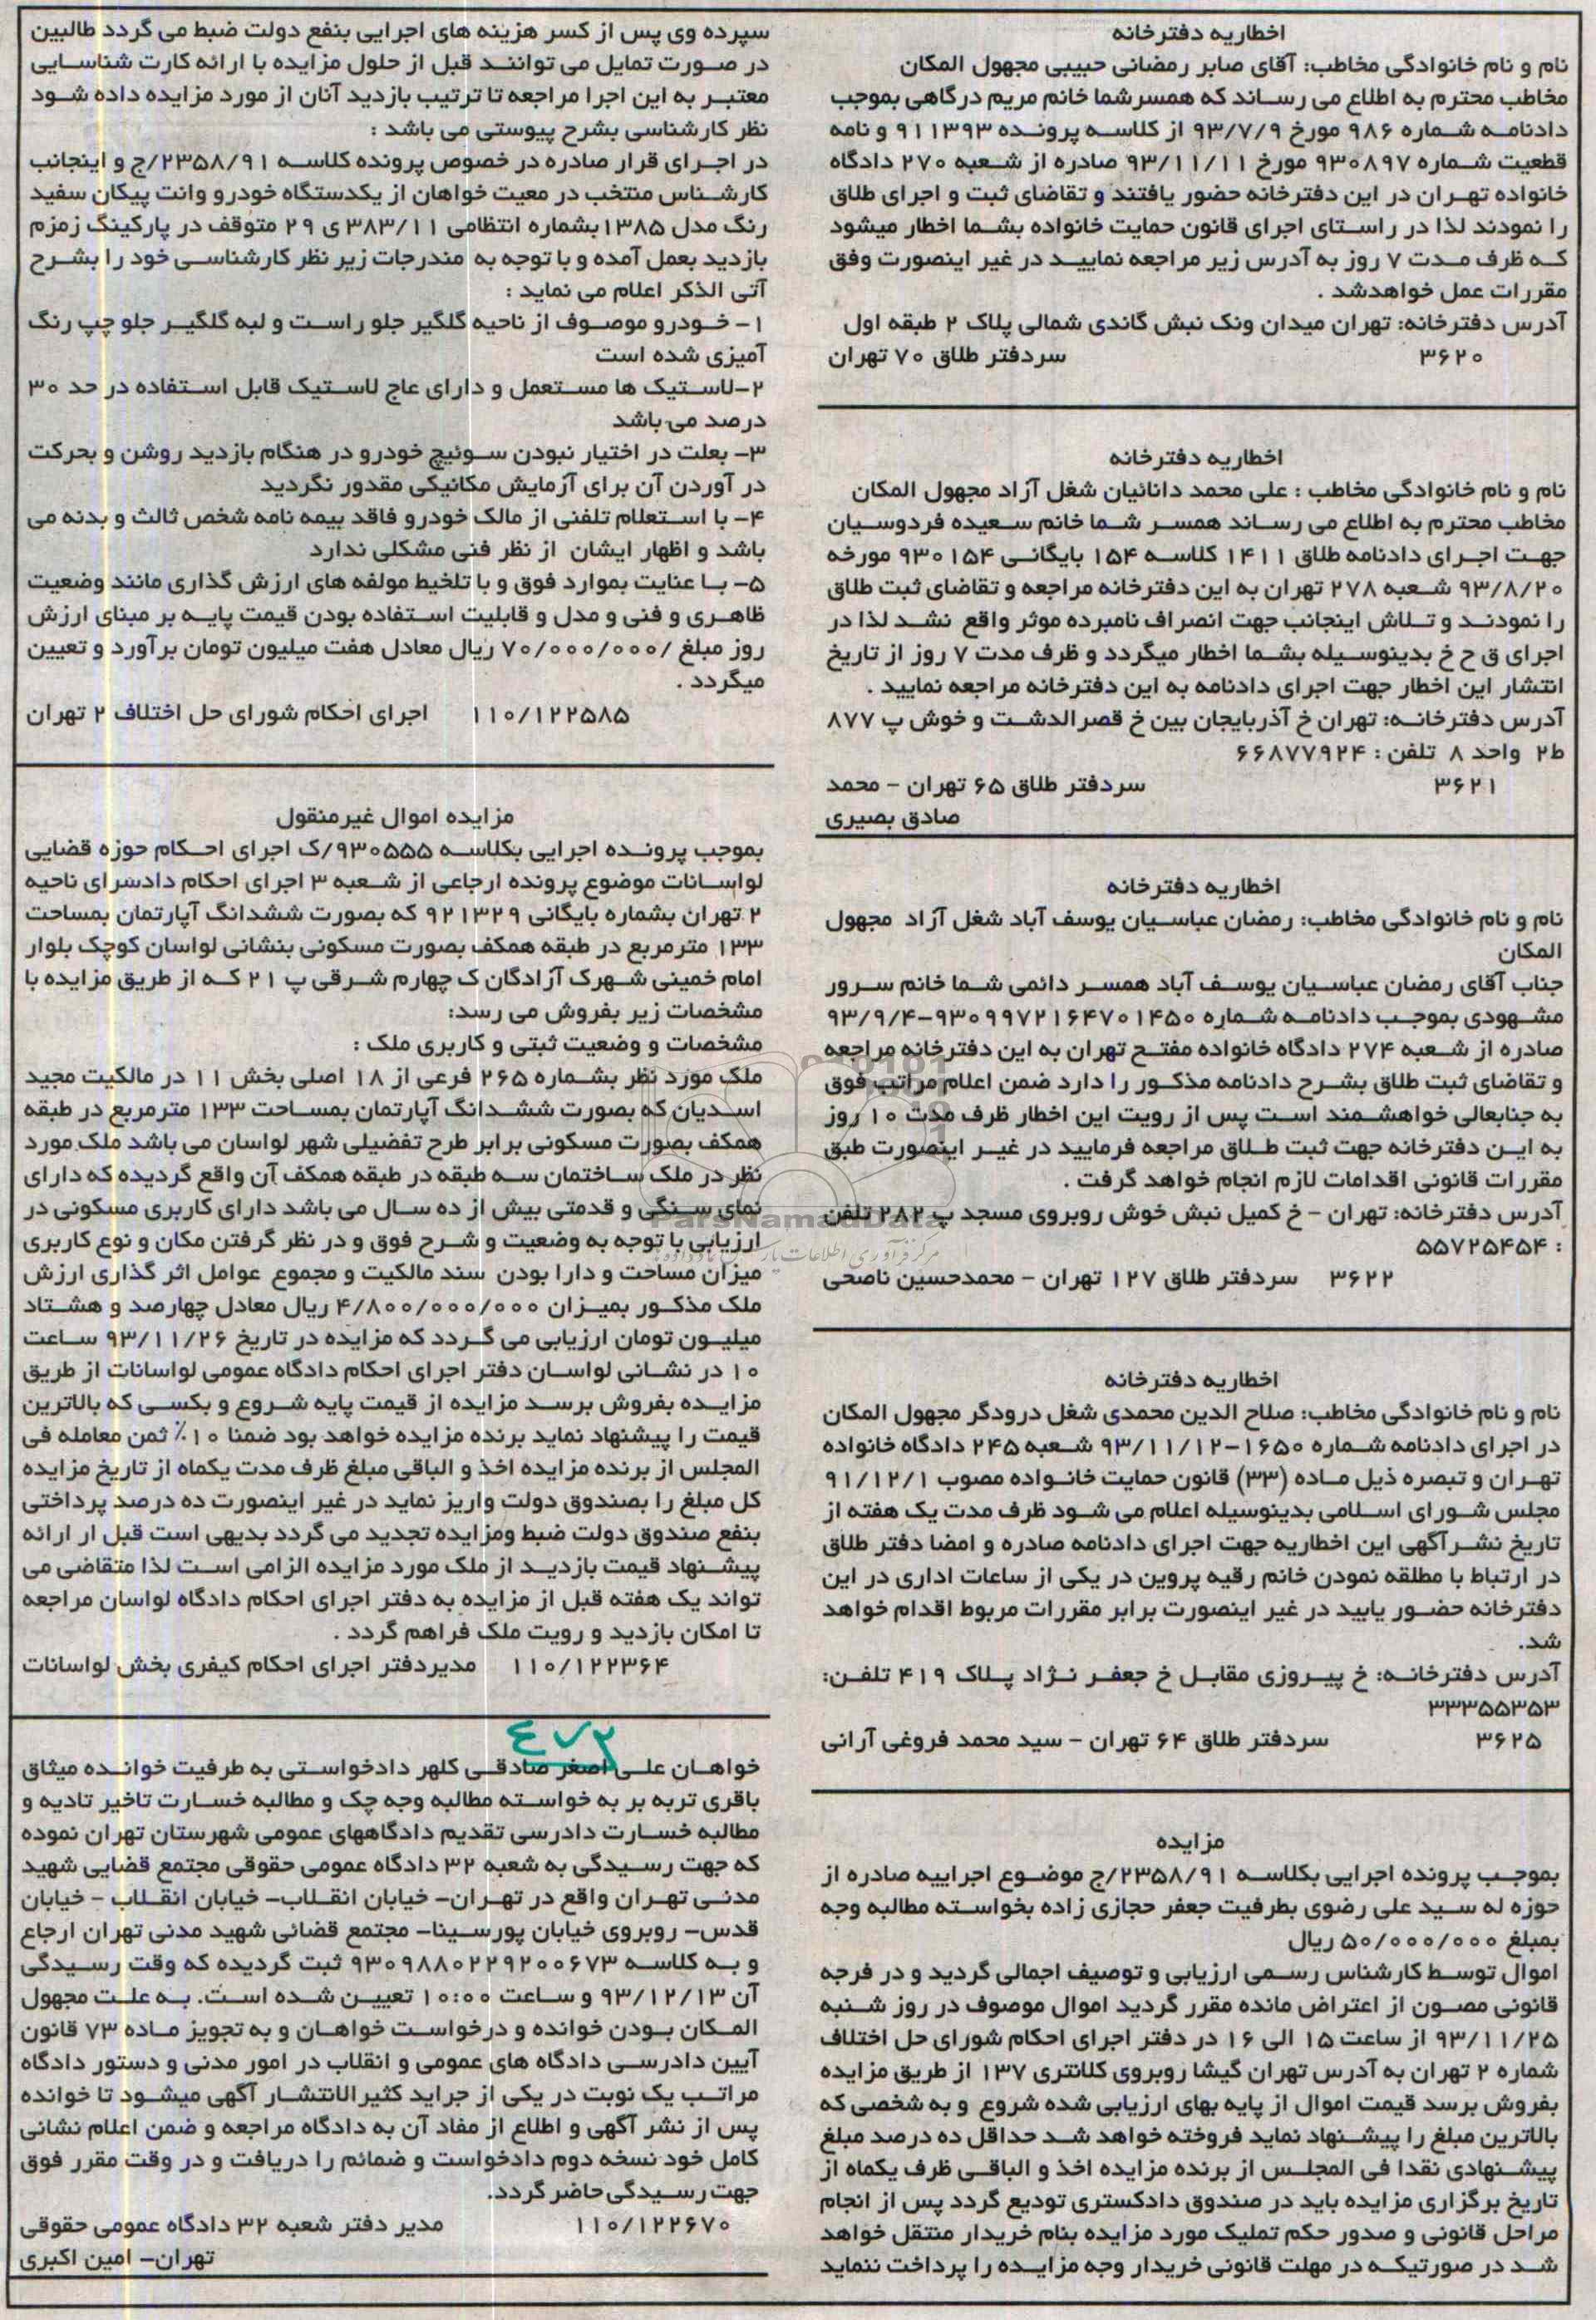 اخطاریه دفترخانه
نام و نام خانوادگی مخاطب: آقای صابر رمضانی حبیبی مجهول المکان
مخاطب محترم به اطلاع می رساند که همسرشما خانم مریم درگاهی بموجب
دادنامه شماره ۹۸۶ مورخ ۹۳/۷/۹ از کلاسه پرونده ۹۱۱۳۹۳ و نامه
قطعیت شماره ۹۳۰۸۹۷ مورخ ۹۳/۱۱/۱۱ صادره از شعبه ۲۷۰ دادگاه
خانواده تهران در این دفترخانه حضور یافتند و تقاضای ثبت و اجرای طلاق
را نمودند لذا در راستای اجرای قانون حمایت خانواده بشما اخطار میشود
که ظرف مدت ۷ روز به آدرس زیر مراجعه نمایید در غیر اینصورت وفق
مقررات عمل خواهدشد .
آدرس دفترخانه: تهران میدان ونک نبش گاندی شمالی پلاک ۲ طبقه اول
۳۶۲۰ سردفتر طلاق ۷۰ تهران
اخطاریه دفترخانه
نام و نام خانوادگی مخاطب : علی محمد دانائیان شغل آزاد مجهول المکان
مخاطب محترم به اطلاع می رساند همسر شما خانم سعیده فردوسیان
جهت اجرای دادنامه طلاق ۱۴۱۱ کلاسه ۱۵۴ بایگانی ۹۳۰۱۵۴ مورخه
۹۳/۸/۲۰ شعبه ۲۷۸ تهران به این دفترخانه مراجعه و تقاضای ثبت طلاق
را نمودند و تلاش اینجانب جهت انصراف نامبرده موثر واقع نشد لذا در
اجرای ق ح خ بدینوسیله بشما اخطار میگردد و ظرف مدت ۷ روز از تاریخ
انتشار این اخطار جهت اجرای دادنامه به این دفترخانه مراجعه نمایید .
آدرس دفترخانه: تهران خ آذربایجان بین خ قصرالدشت و خوش پ ۸۷۷
ط۲ واحد ۸ تلفن : ۶۶۸۷۷۹۲۴
۳۶۲۱ سردفتر طلاق ۶۵ تهران – محمد
صادق بصیری
اخطاریه دفترخانه
نام و نام خانوادگی مخاطب: رمضان عباسیان یوسف آباد شغل آزاد مجهول
المکان
جناب آقای رمضان عباسیان یوسف آباد همسر دائمی شما خانم سرور
مشهودی بموجب دادنامه شماره ۹۳۰۹۹۷۲۱۶۴۷۰۱۴۵۰–۹۳/۹/۴
صادره از شعبه ۲۷۴ دادگاه خانواده مفتح تهران به این دفترخانه مراجعه
و تقاضای ثبت طلاق بشرح دادنامه مذکور را دارد ضمن اعلام مراتب فوق
به جنابعالی خواهشمند است پس از رویت این اخطار ظرف مدت ۱۰ روز
به این دفترخانه جهت ثبت طلاق مراجعه فرمایید در غیر اینصورت طبق
مقررات قانونی اقدامات لازم انجام خواهد گرفت .
آدرس دفترخانه: تهران – خ کمیل نبش خوش روبروی مسجد پ ۲۸۲ تلفن
: ۵۵۷۲۵۴۵۴
۳۶۲۲ سردفتر طلاق ۱۲۷ تهران – محمدحسین ناصحی
اخطاریه دفترخانه
نام و نام خانوادگی مخاطب: صلاح الدین محمدی شغل درودگر مجهول المکان
در اجرای دادنامه شماره ۱۶۵۰–۹۳/۱۱/۱۲ شعبه ۲۴۵ دادگاه خانواده
تهران و تبصره ذیل ماده (۳۳) قانون حمایت خانواده مصوب ۹۱/۱۲/۱
مجلس شورای اسلامی بدینوسیله اعلام می شود ظرف مدت یک هفته از
تاریخ نشرآگهی این اخطاریه جهت اجرای دادنامه صادره و امضا دفتر طلاق
در ارتباط با مطلقه نمودن خانم رقیه پروین در یکی از ساعات اداری در این
دفترخانه حضور یابید در غیر اینصورت برابر مقررات مربوط اقدام خواهد
شد.
آدرس دفترخانه: خ پیروزی مقابل خ جعفر نژاد پلاک ۴۱۹ تلفن:
۳۳۳۵۵۳۵۳
۳۶۲۵ سردفتر طلاق ۶۴ تهران – سید محمد فروغی آرانی
مزایده
بموجب پرونده اجرایی بکلاسه ۲۳۵۸/۹۱/ج موضوع اجراییه صادره از
حوزه له سید علی رضوی بطرفیت جعفر حجازی زاده بخواسته مطالبه وجه
بمبلغ ۵۰/۰۰۰/۰۰۰ ریال
اموال توسط کارشناس رسمی ارزیابی و توصیف اجمالی گردید و در فرجه
قانونی مصون از اعتراض مانده مقرر گردید اموال موصوف در روز شنبه
۹۳/۱۱/۲۵ از ساعت ۱۵ الی ۱۶ در دفتر اجرای احکام شورای حل اختلاف
شماره ۲ تهران به آدرس تهران گیشا روبروی کلانتری ۱۳۷ از طریق مزایده
بفروش برسد قیمت اموال از پایه بهای ارزیابی شده شروع و به شخصی که
بالاترین مبلغ را پیشنهاد نماید فروخته خواهد شد حداقل ده درصد مبلغ
پیشنهادی نقدا فی المجلس از برنده مزایده اخذ و الباقی ظرف یکماه از
تاریخ برگزاری مزایده باید در صندوق دادگستری تودیع گردد پس از انجام
مراحل قانونی و صدور حکم تملیک مورد مزایده بنام خریدار منتقل خواهد
شد در صورتیکه در مهلت قانونی خریدار وجه مزایده را پرداخت ننماید
سپرده وی پس از کسر هزینه های اجرایی بنفع دولت ضبط می گردد طالبین
در صورت تمایل می توانند قبل از حلول مزایده با ارائه کارت شناسایی
معتبر به این اجرا مراجعه تا ترتیب بازدید آنان از مورد مزایده داده شود
نظر کارشناسی بشرح پیوستی می باشد :
در اجرای قرار صادره در خصوص پرونده کلاسه ۲۳۵۸/۹۱/ج و اینجانب
کارشناس منتخب در معیت خواهان از یکدستگاه خودرو وانت پیکان سفید
رنگ مدل ۱۳۸۵ بشماره انتظامی ۳۸۳/۱۱ ی ۲۹ متوقف در پارکینگ زمزم
بازدید بعمل آمده و با توجه به مندرجات زیر نظر کارشناسی خود را بشرح
آتی الذکر اعلام می نماید :
۱– خودرو موصوف از ناحیه گلگیر جلو راست و لبه گلگیر جلو چپ رنگ
آمیزی شده است
۲–لاستیک ها مستعمل و دارای عاج لاستیک قابل استفاده در حد ۳۰
درصد می باشد
۳– بعلت در اختیار نبودن سوئیچ خودرو در هنگام بازدید روشن و بحرکت
در آوردن آن برای آزمایش مکانیکی مقدور نگردید
۴– با استعلام تلفنی از مالک خودرو فاقد بیمه نامه شخص ثالث و بدنه می
باشد و اظهار ایشان از نظر فنی مشکلی ندارد
۵– با عنایت بموارد فوق و با تلخیط مولفه های ارزش گذاری مانند وضعیت
ظاهری و فنی و مدل و قابلیت استفاده بودن قیمت پایه بر مبنای ارزش
روز مبلغ /۷۰/۰۰۰/۰۰۰ ریال معادل هفت میلیون تومان برآورد و تعیین
میگردد .
۱۱۰/۱۲۲۵۸۵ اجرای احکام شورای حل اختلاف ۲ تهران
مزایده اموال غیرمنقول
بموجب پرونده اجرایی بکلاسه ۹۳۰۵۵۵/ک اجرای احکام حوزه قضایی
لواسانات موضوع پرونده ارجاعی از شعبه ۳ اجرای احکام دادسرای ناحیه
۲ تهران بشماره بایگانی ۹۲۱۳۲۹ که بصورت ششدانگ آپارتمان بمساحت
۱۳۳ مترمربع در طبقه همکف بصورت مسکونی بنشانی لواسان کوچک بلوار
امام خمینی شهرک آزادگان ک چهارم شرقی پ ۲۱ که از طریق مزایده با
مشخصات زیر بفروش می رسد:
مشخصات و وضعیت ثبتی و کاربری ملک :
ملک مورد نظر بشماره ۲۶۵ فرعی از ۱۸ اصلی بخش ۱۱ در مالکیت مجید
اسدیان که بصورت ششدانگ آپارتمان بمساحت ۱۳۳ مترمربع در طبقه
همکف بصورت مسکونی برابر طرح تفضیلی شهر لواسان می باشد ملک مورد
نظر در ملک ساختمان سه طبقه در طبقه همکف آن واقع گردیده که دارای
نمای سنگی و قدمتی بیش از ده سال می باشد دارای کاربری مسکونی در
ارزیابی با توجه به وضعیت و شرح فوق و در نظر گرفتن مکان و نوع کاربری
میزان مساحت و دارا بودن سند مالکیت و مجموع عوامل اثر گذاری ارزش
ملک مذکور بمیزان ۴/۸۰۰/۰۰۰/۰۰۰ ریال معادل چهارصد و هشتاد
میلیون تومان ارزیابی می گردد که مزایده در تاریخ ۹۳/۱۱/۲۶ ساعت
۱۰ در نشانی لواسان دفتر اجرای احکام دادگاه عمومی لواسانات از طریق
مزایده بفروش برسد مزایده از قیمت پایه شروع و بکسی که بالاترین
قیمت را پیشنهاد نماید برنده مزایده خواهد بود ضمنا ۱۰٪ ثمن معامله فی
المجلس از برنده مزایده اخذ و الباقی مبلغ ظرف مدت یکماه از تاریخ مزایده
کل مبلغ را بصندوق دولت واریز نماید در غیر اینصورت ده درصد پرداختی
بنفع صندوق دولت ضبط ومزایده تجدید می گردد بدیهی است قبل ار ارائه
پیشنهاد قیمت بازدید از ملک مورد مزایده الزامی است لذا متقاضی می
تواند یک هفته قبل از مزایده به دفتر اجرای احکام دادگاه لواسان مراجعه
تا امکان بازدید و رویت ملک فراهم گردد .
۱۱۰/۱۲۲۳۶۴ مدیردفتر اجرای احکام کیفری بخش لواسانات
خواهان علی اصغر صادقی کلهر دادخواستی به طرفیت خوانده میثاق
باقری تربه بر به خواسته مطالبه وجه چک و مطالبه خسارت تاخیر تادیه و
مطالبه خسارت دادرسی تقدیم دادگاههای عمومی شهرستان تهران نموده
که جهت رسیدگی به شعبه ۳۲ دادگاه عمومی حقوقی مجتمع قضایی شهید
مدنی تهران واقع در تهران– خیابان انقلاب– خیابان انقلاب – خیابان
قدس– روبروی خیابان پورسینا– مجتمع قضائی شهید مدنی تهران ارجاع
و به کلاسه ۹۳۰۹۸۸۰۲۲۹۲۰۰۶۷۳ ثبت گردیده که وقت رسیدگی
آن ۹۳/۱۲/۱۳ و ساعت ۱۰:۰۰ تعیین شده است. به علت مجهول
المکان بودن خوانده و درخواست خواهان و به تجویز ماده ۷۳ قانون
آیین دادرسی دادگاه های عمومی و انقلاب در امور مدنی و دستور دادگاه
مراتب یک نوبت در یکی از جراید کثیرالانتشار آگهی میشود تا خوانده
پس از نشر آگهی و اطلاع از مفاد آن به دادگاه مراجعه و ضمن اعلام نشانی
کامل خود نسخه دوم دادخواست و ضمائم را دریافت و در وقت مقرر فوق
جهت رسیدگی حاضر گردد.
۱۱۰/۱۲۲۶۷۰ مدیر دفتر شعبه ۳۲ دادگاه عمومی حقوقی
تهران– امین اکبری
ParsNamadData